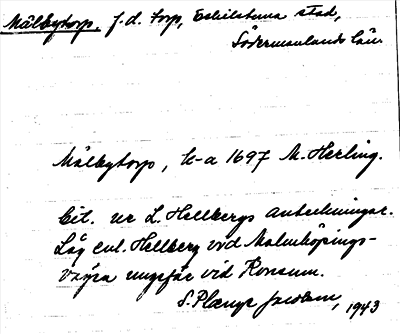 Mälbytorp, f.d. torp, Eskilstuna stad,
Södermanlands län.
Mälbytorp, k-a 1697 M. Herling.
Cit. ur L. Hellbergs anteckningar.
Låg enl. Hellberg vid Malmköpings-
vägen ungefär vid Konsum.
S. Plange 1943